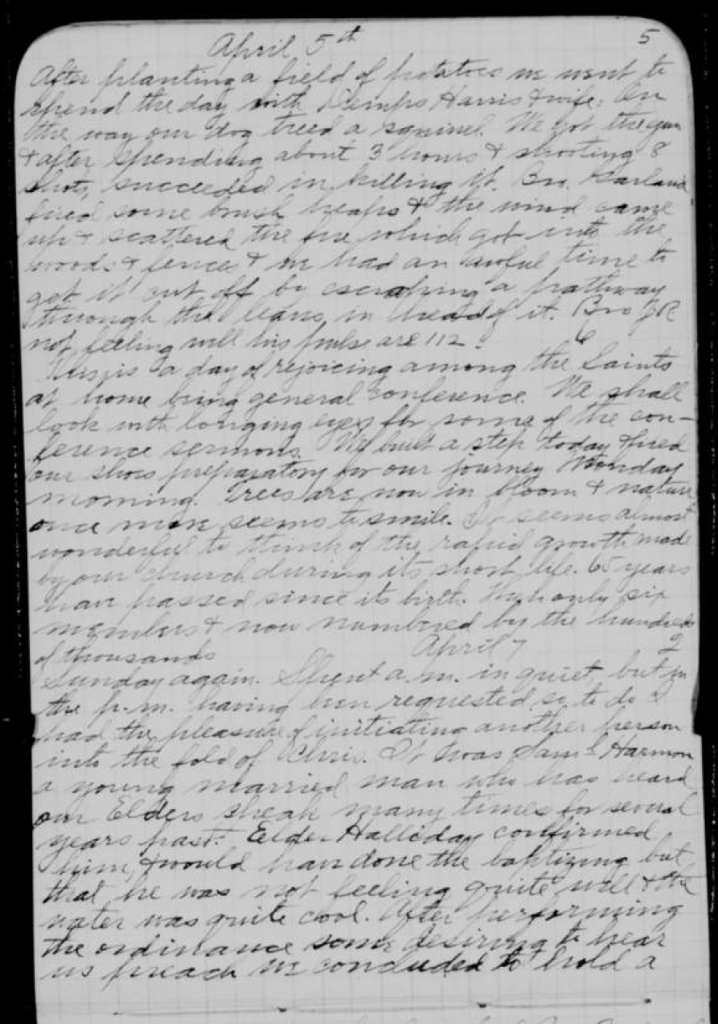 April 5th 5
After planting a field of potatoes we went to
spend the day with Kemps Harris & wife. On
the way our dog treed a squirrel. We got the gun
& after spending about 3 hours & shooting 8
shots, succeeded in killing it. Bro. Garland
fired some brush heaps & the wind came
up & scattered the fire which got into the
woods & fences & we had an awful time to
get it cut off by escraping a pathway
through the leaves in ahead of it. Bro J R
not feeling well his pulse are 112.
6
This is a day of rejoicing among the Saints
at home being general conference. We shall
look with longing eyes for some of the con-
ference sermons. We built a step today & fixed
our shoes preparatory for our journey Monday
morning. Trees are now in bloom & nature
once more seems to smile. It seems almost
wonderful to think of the rapid growth made
by our church during its short life. 65 years
have passed since its birth with only six
members & now numbered by the hundreds
of thousands
April 7 2
Sunday again. Spent a.m. in quiet but in
the p.m. having been requested so to do I
had the pleasure of initiating another person
into the fold of Chris. It was Saml Harmon
a young married man who has heard
our Elders speak many times for several
years past. Elder Halliday confirmed
him, & would have done the baptizing but
that he was not feeling quite well & the
water was quite cool. After performing
the ordinance some desiring to hear
us preach we concluded to hold a